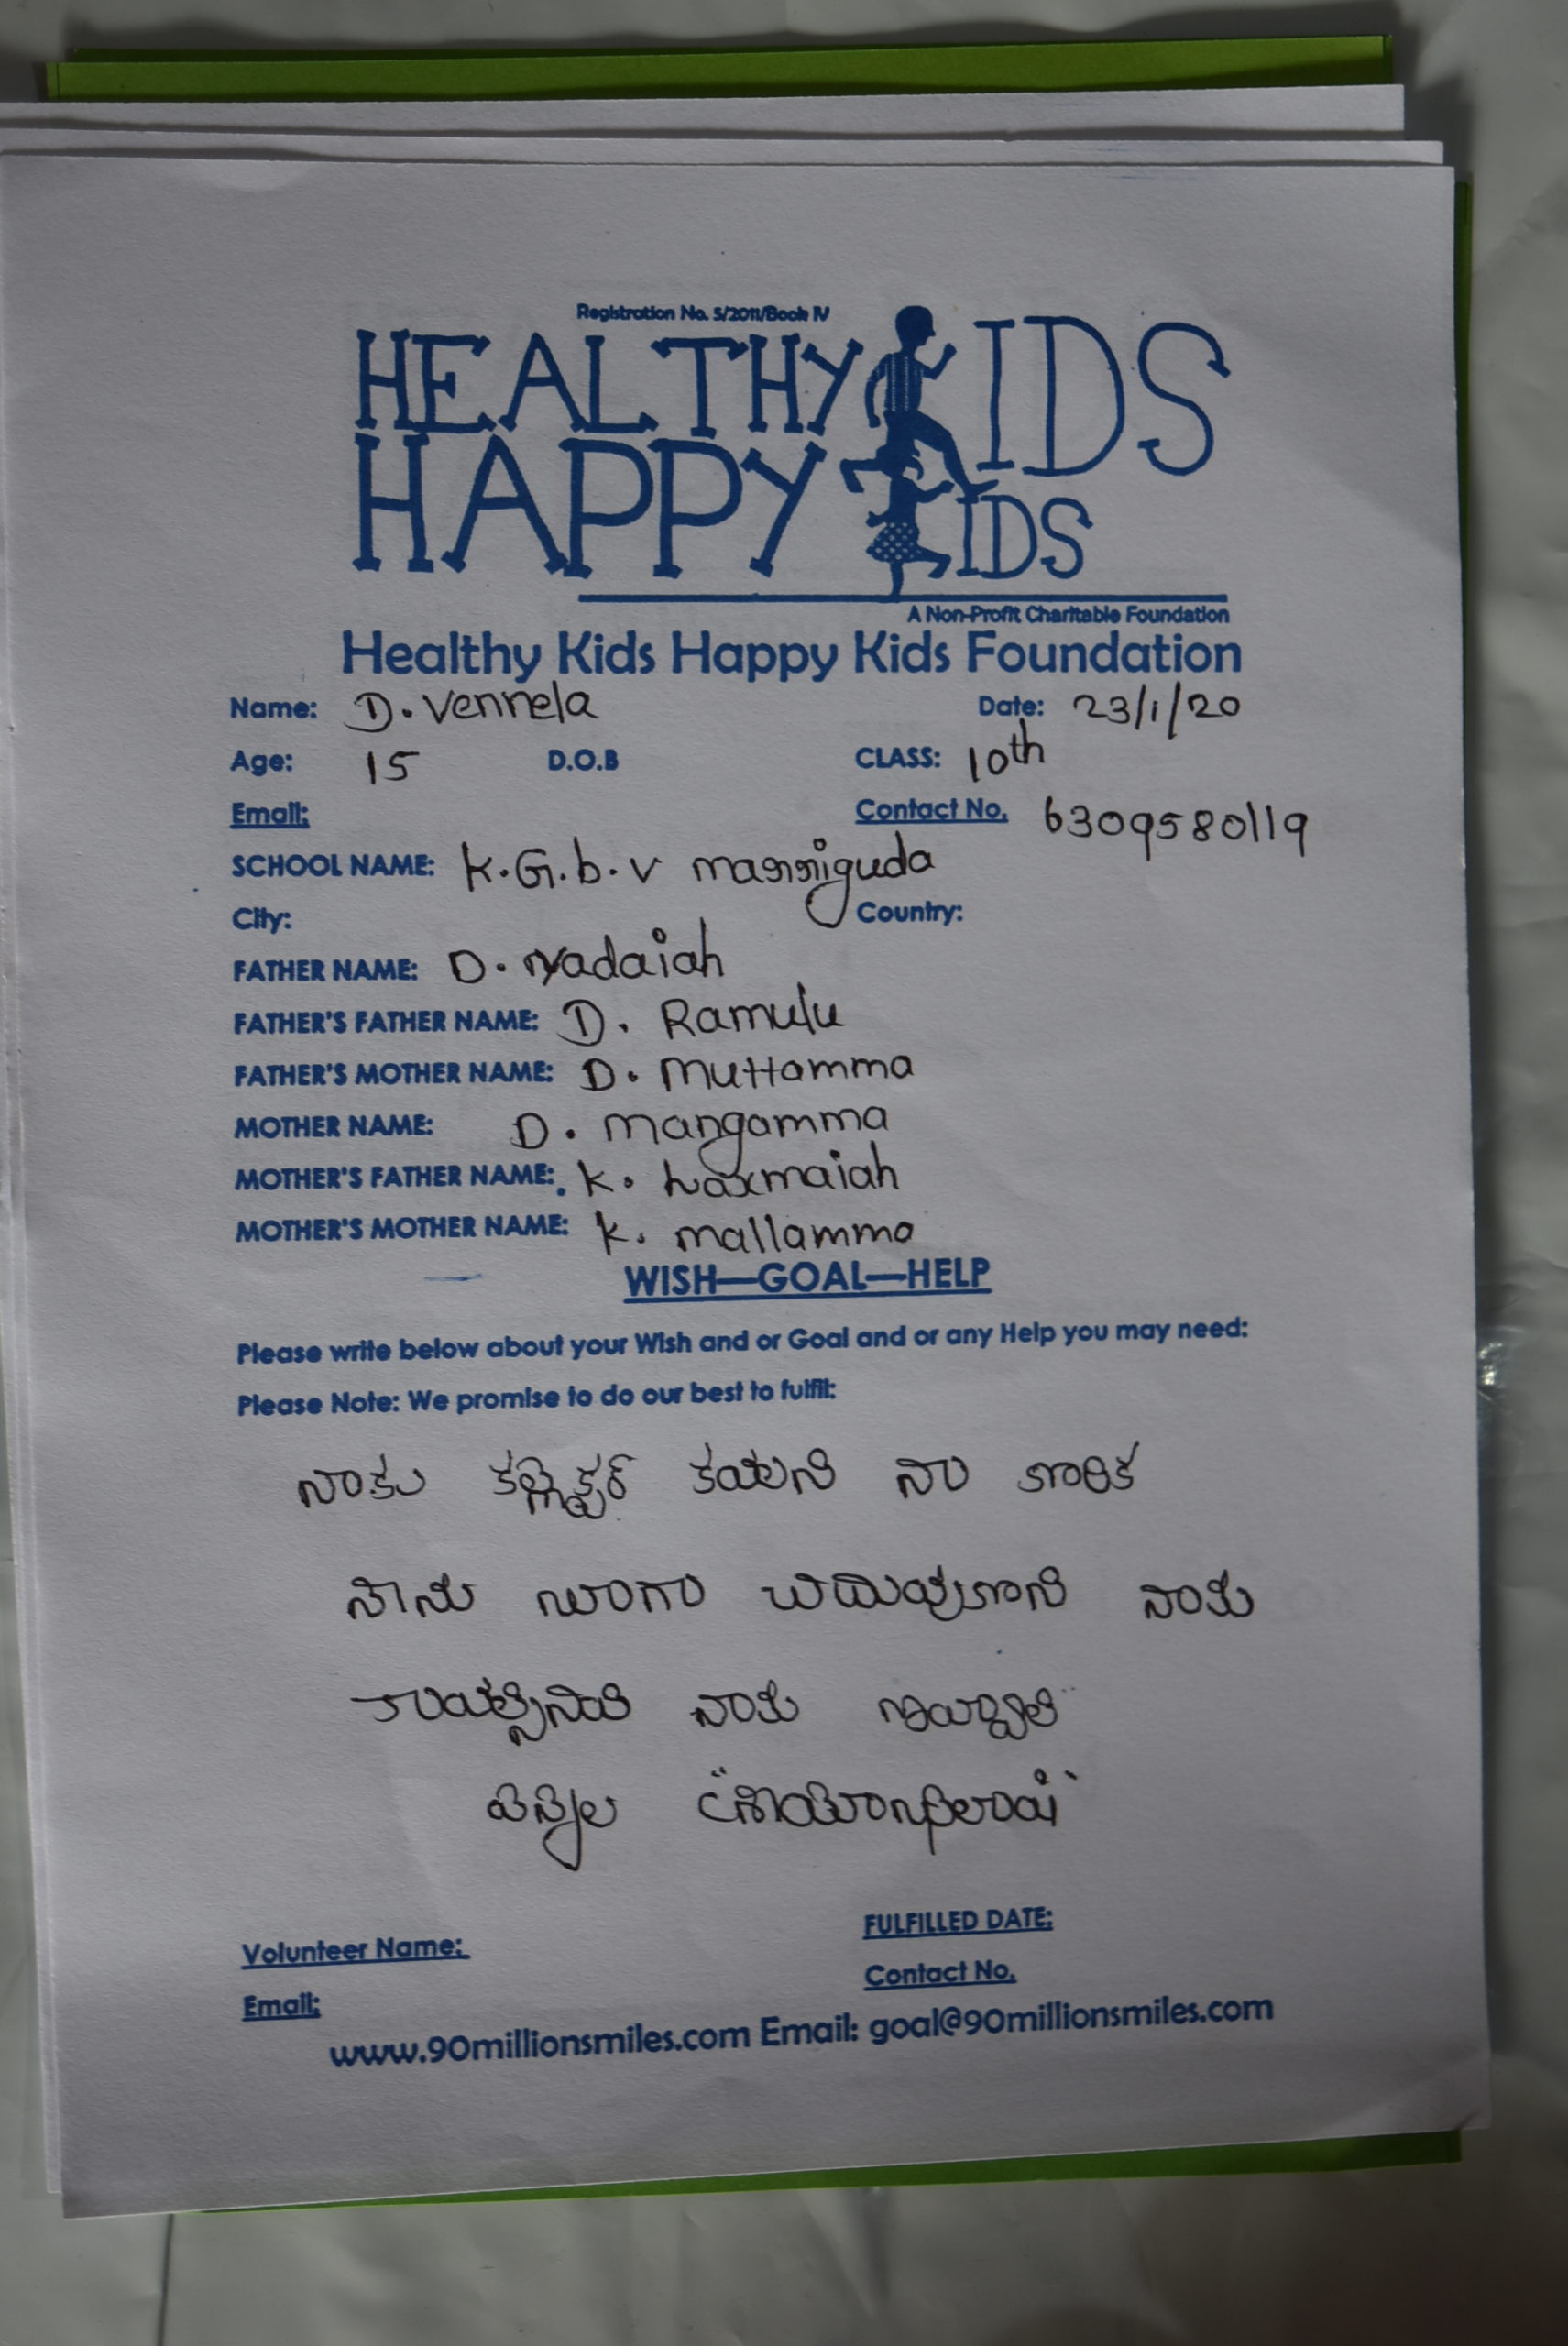 Registration No. 5/2011/Book IV
HEALTHY KIDS
HAPPY KIDS
A Non-Profit Charitable Foundation
Healthy Kids Happy Kids Foundation
Name: D. Vennela Date: 23/1/20
Age: 15 D.O.B CLASS: 10th
Email: Contact No. 6309580119
SCHOOL NAME: K.G.b.v manniguda
City: Country:
FATHER NAME: D. yadaiah
FATHER'S FATHER NAME: D. Ramulu
FATHER'S MOTHER NAME: D. Muttamma
MOTHER NAME: D. mangamma
MOTHER'S FATHER NAME: K. Laxmaiah
MOTHER'S MOTHER NAME: K. mallamma
WISH—GOAL—HELP
Please write below about your Wish and or Goal and or any Help you may need:
Please Note: We promise to do our best to fulfil:
నాకు కలెక్టర్ నా కోరిక
నేను బాగా నాకు
నాకు
వెన్నెల
FULFILLED DATE:
Volunteer Name:
Contact No.
Email:
www.90millionsmiles.com Email: goal@90millionsmiles.com